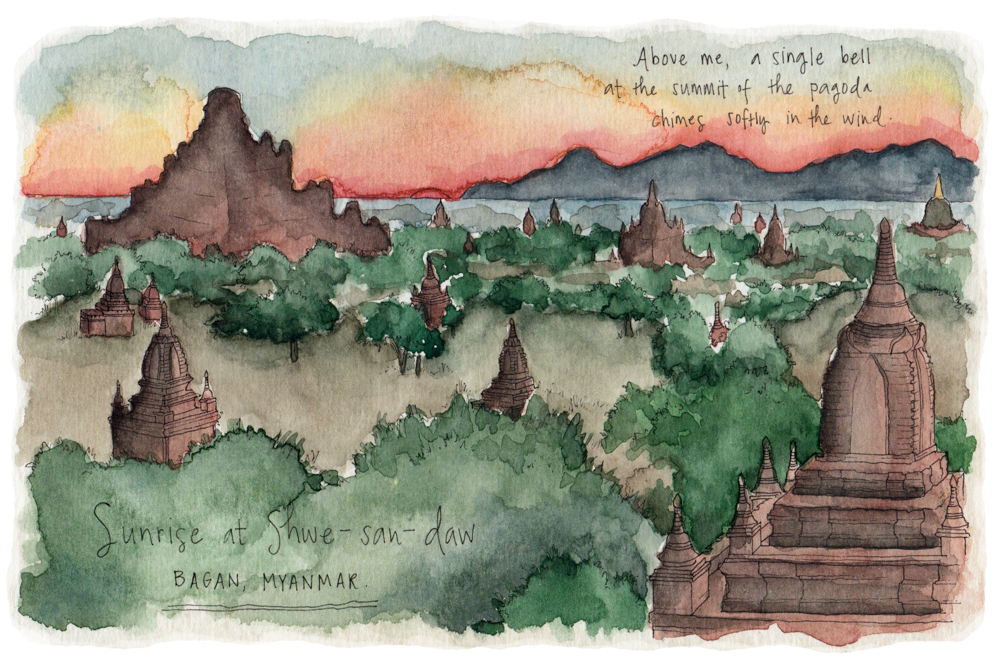 Above me, a single bell
at the summit of the pagoda
chimes softly in the wind.
Sunrise at Shwe-san-daw
BAGAN, MYANMAR.